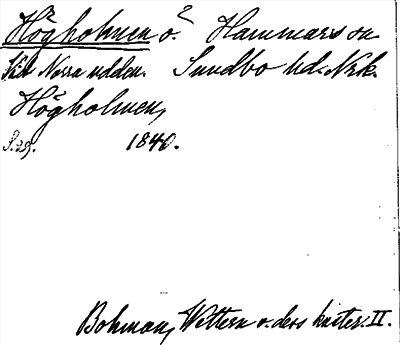 Högholmen ö. ? Hammars sn
vid Norra udden. Sundbo hd. Nrk.
Högholmen,
S. 29. 1840.
Bohman, Wettern o. dess kuster. II.